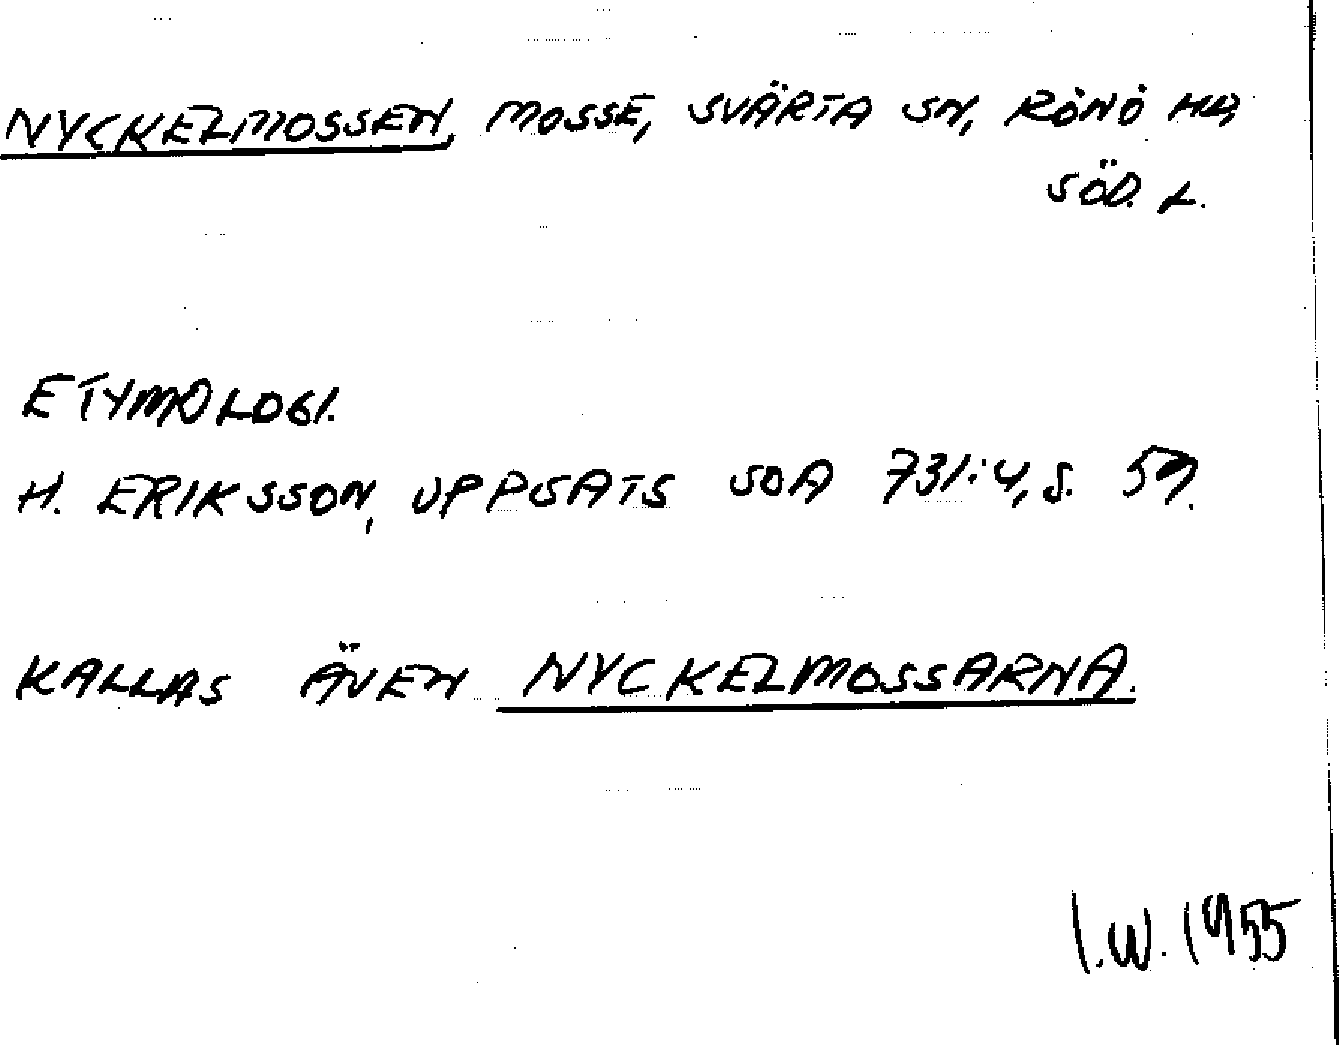 NYCKELMOSSEN, MOSSE, SVÄRTA SN, RÖNÖ HD,
SÖD. L.
ETYMOLOGI.
H. ERIKSSON, UPPSATS SOA 731:4, S. 57.
KALLAS ÄVEN NYCKELMOSSARNA.
I.W. 1955